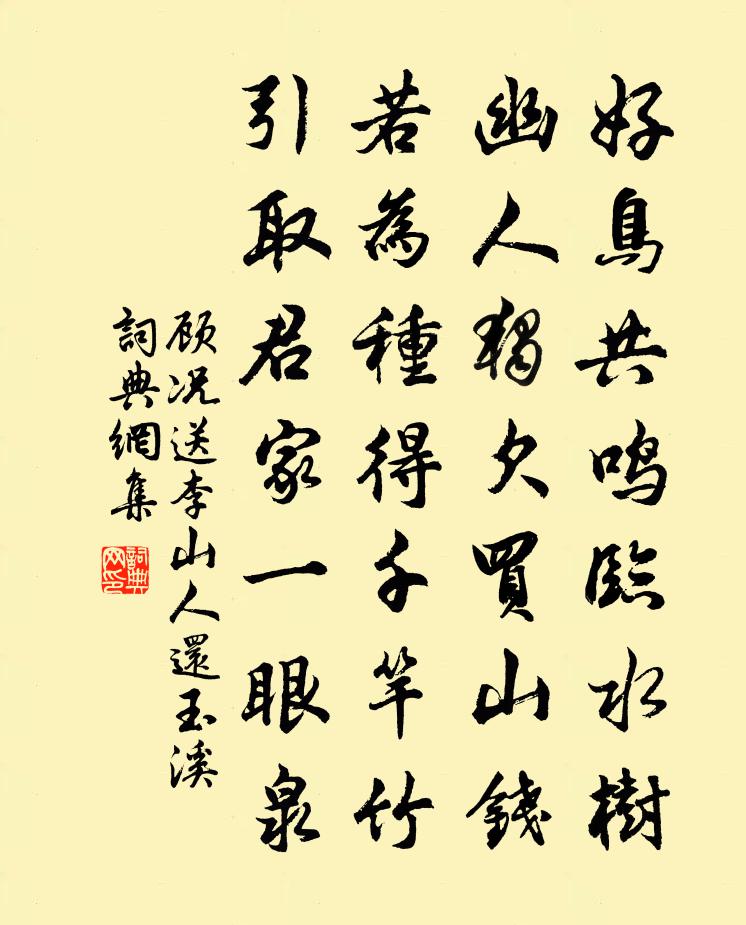 好鳥共鳴臨水樹
幽人獨欠買山錢
若為種得千竿竹
引取君家一眼泉
顾况送李山人還玉溪
詞典網集
詞典網印